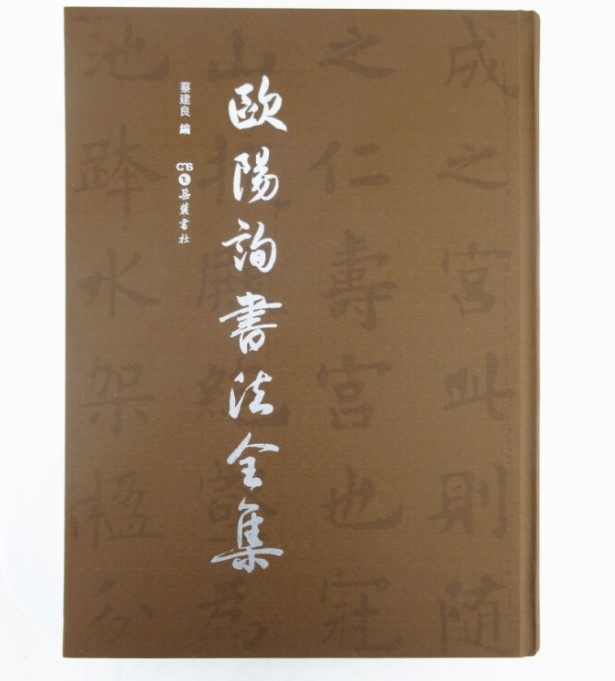 成之宮此則随
之仁壽宮也冠
山抗殿絶壑為
池跨水架楹分
歐陽詢書法全集
蔡建良 編
岳麓書社